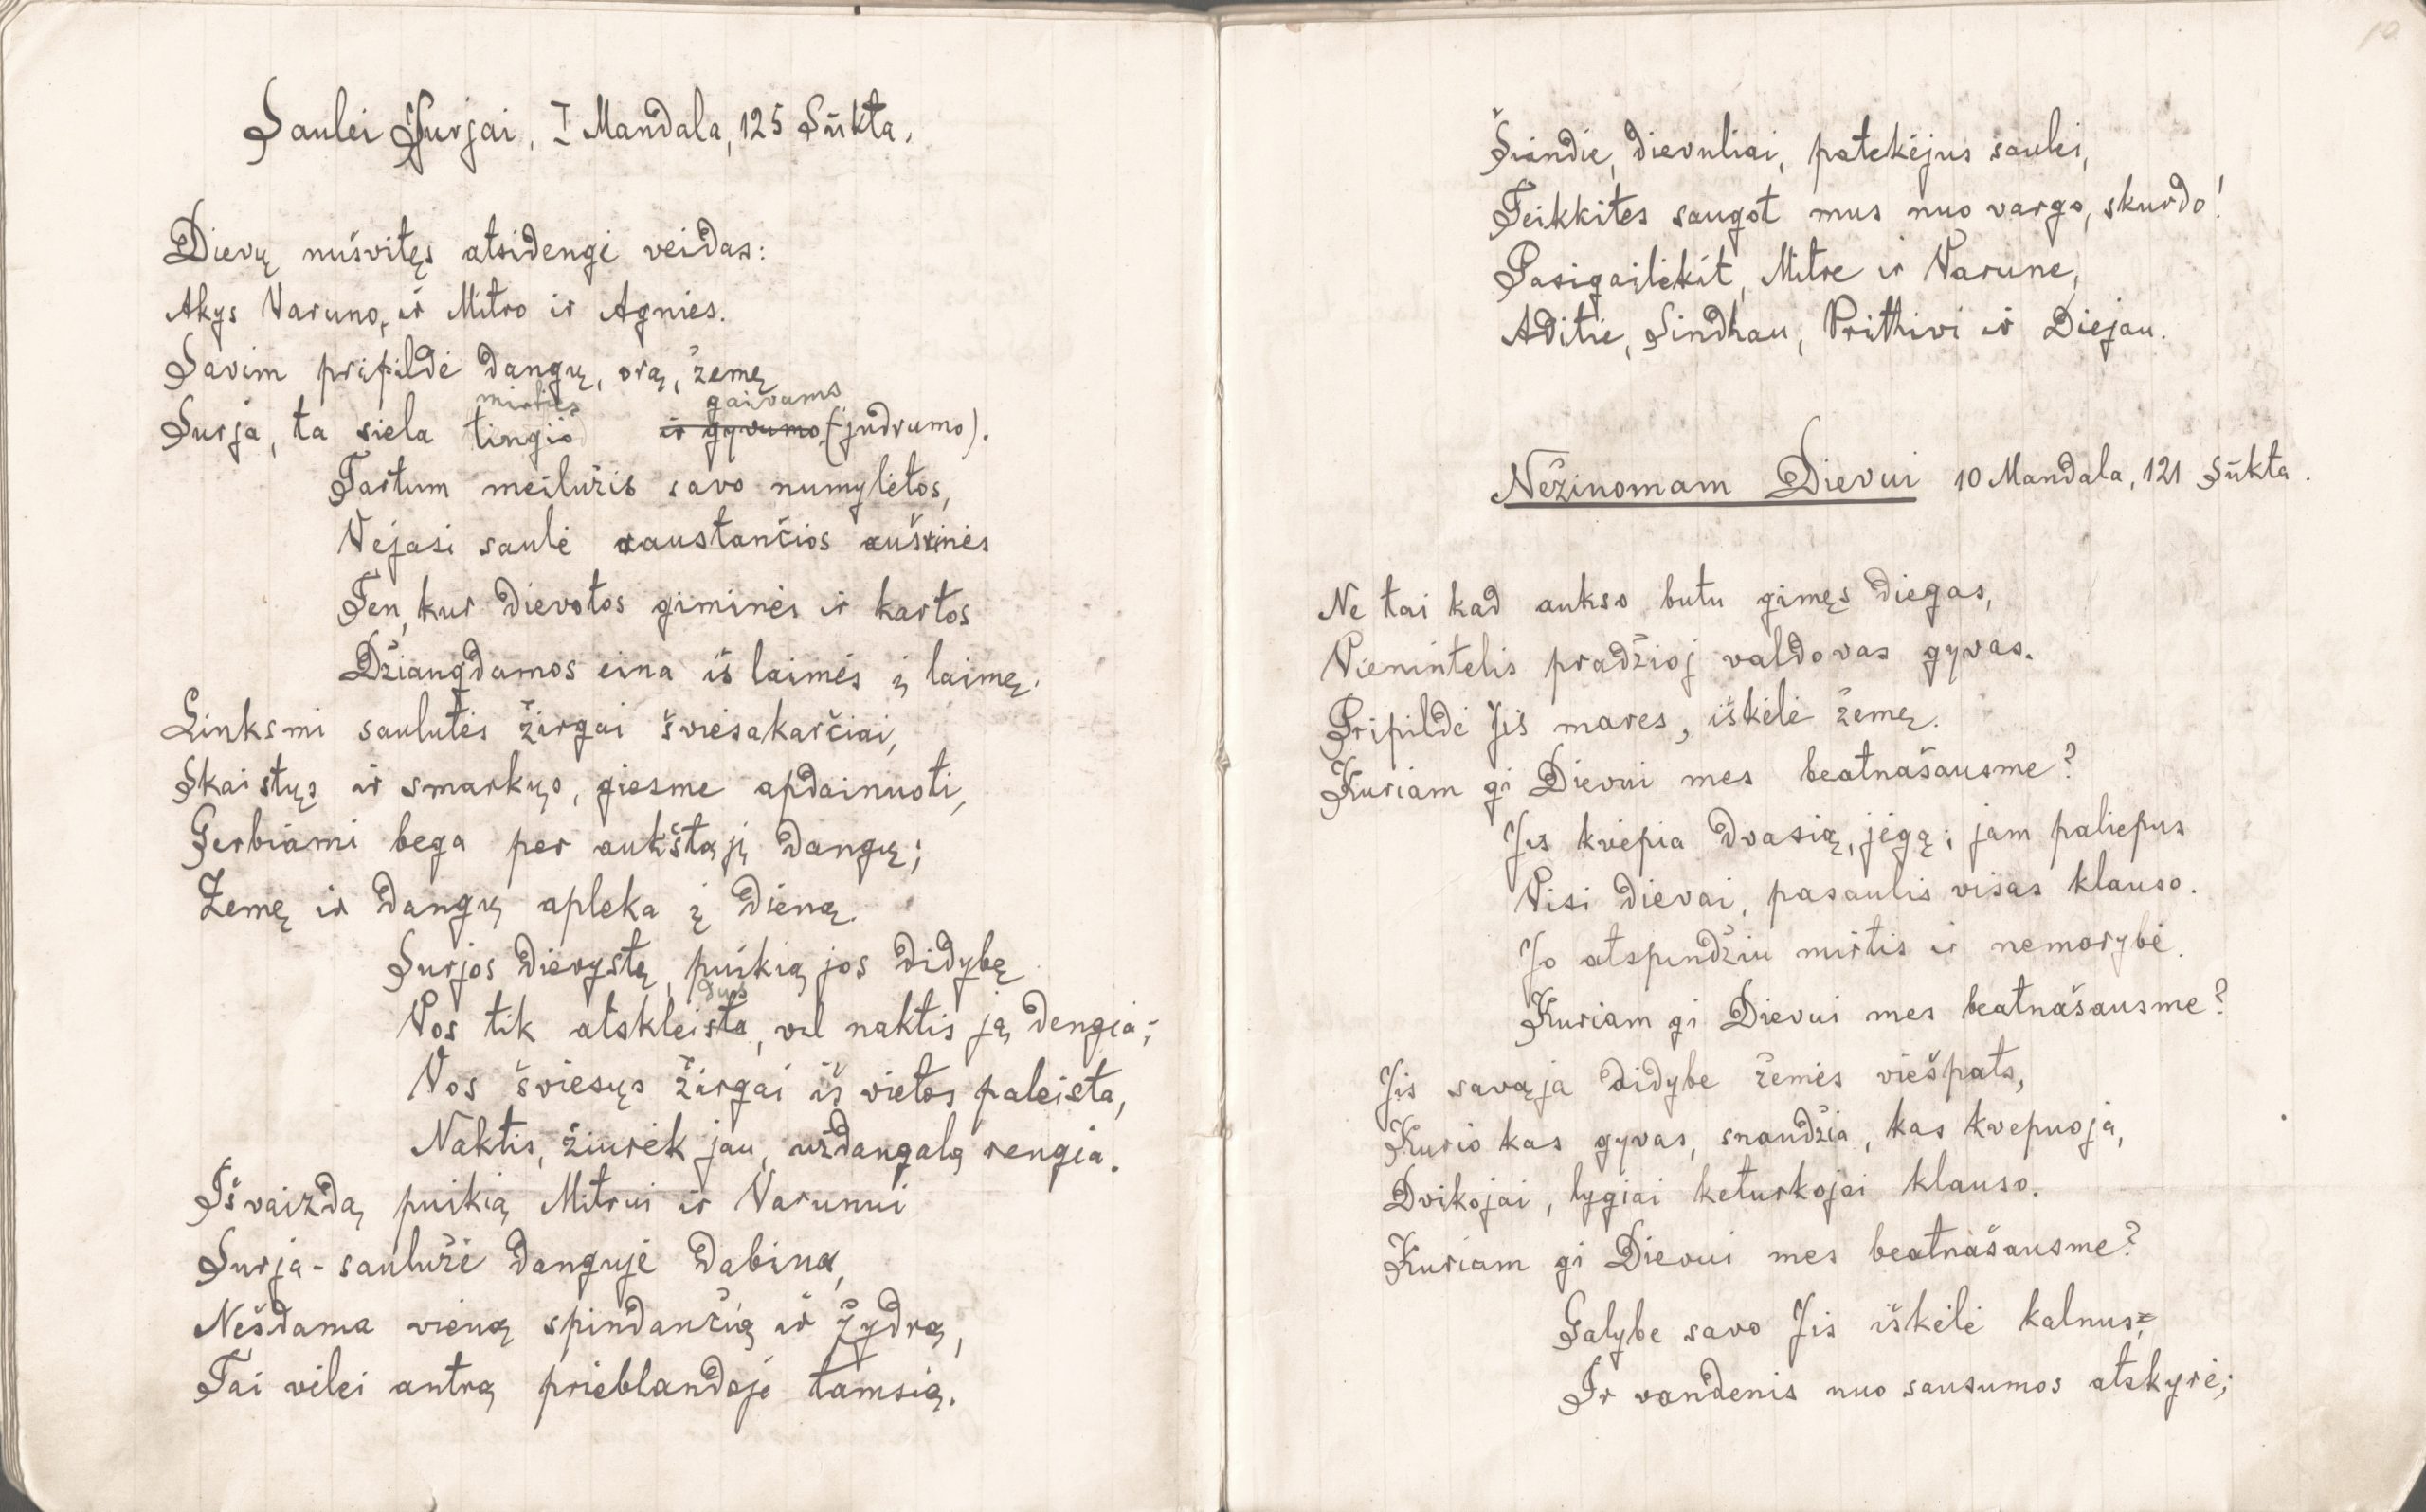 Saulei Surjai, I Mandala, 125 Sūkta.
Dievų nušvitęs atsidengė veidas:
Akys Varuno, ir Mitro ir Agnies.
Savim pripildė dangų, orą, žemę
mirties gaivums
Surja, ta siela tingio ir gyvumo (judrumo).
Tartum meilužis savo numylėtos,
Vejasi saulė raustančios aušrinės
Ten, kur dievotos giminės ir kartos
Džiaugdamos eina iš laimės į laimę.
Linksmi saulutės žirgai šviesakarčiai,
Skaistųs ir smarkųs, giesme apdainuoti,
Gerbiami bega per aukštąjį dangų;
Žemę ir dangų apleka į dieną.
Surjos dievystę, puikią jos didybę
dus
Vos tik atskleista, vėl naktis ją dengia;
Vos šviesųs žirgai iš vietos paleista,
Naktis, žiurėk jau, uždangalą rengia.
Išvaizdą puikią Mitrui ir Varunui
Surja-saulužė danguje dabina,
Nešdama vieną spindančią ir žydrą,
Tai vėlei antrą prieblandoje tamsią.
10
Šiandie, dievuliai, patekėjus saulei,
Teikkitės saugot mus nuo vargo, skurdo!
Pasigailėkit, Mitre ir Varune,
Aditie, Sindhau, Prithivi ir Diejau.
Nežinomam Dievui 10 Mandala, 121 Sūkta.
Ne tai kad aukso butu gimęs diegas,
Vienintelis pradžioj valdovas gyvas.
Pripildė Jis mares, iškėlė žemę.
Kuriam gi Dievui mes beatnašausme?
Jis kvepia dvasią, jėgą; jam paliepus
Visi dievai, pasaulis visas klauso.
Jo atspindžiu mirtis ir nemarybė.
Kuriam gi Dievui mes beatnašausme?
Jis savąja didybe žemės viešpats,
Kurio kas gyvas, snaudžia, kas kvepuoja,
Dvikojai, lygiai keturkojai klauso.
Kuriam gi Dievui mes beatnašausme?
Galybe savo Jis iškėlė kalnus
Ir vandenis nuo sausumos atskyrė;